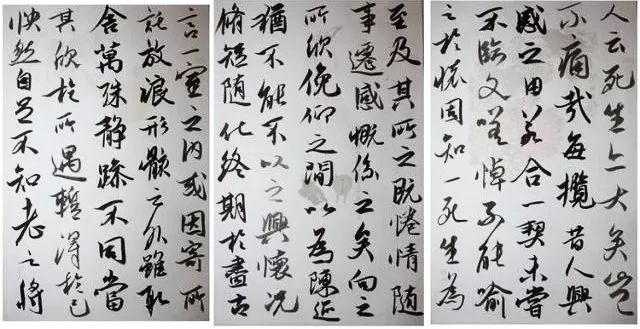 言一室之内或因寄所
託放浪形骸之外雖取
舍萬殊靜躁不同當
其欣於所遇輒得於己
怏然自足不知老之將
至及其所之既惓情隨
事遷感慨係之矣向之
所欣俛仰之間以為陳迹
猶不能不以之興懷况
脩短随化終期於盡古
人云死生亦大矣豈
不痛哉每攬昔人興
感之由若合一契未嘗
不臨文嗟悼不能喻
之於懷固知一死生為